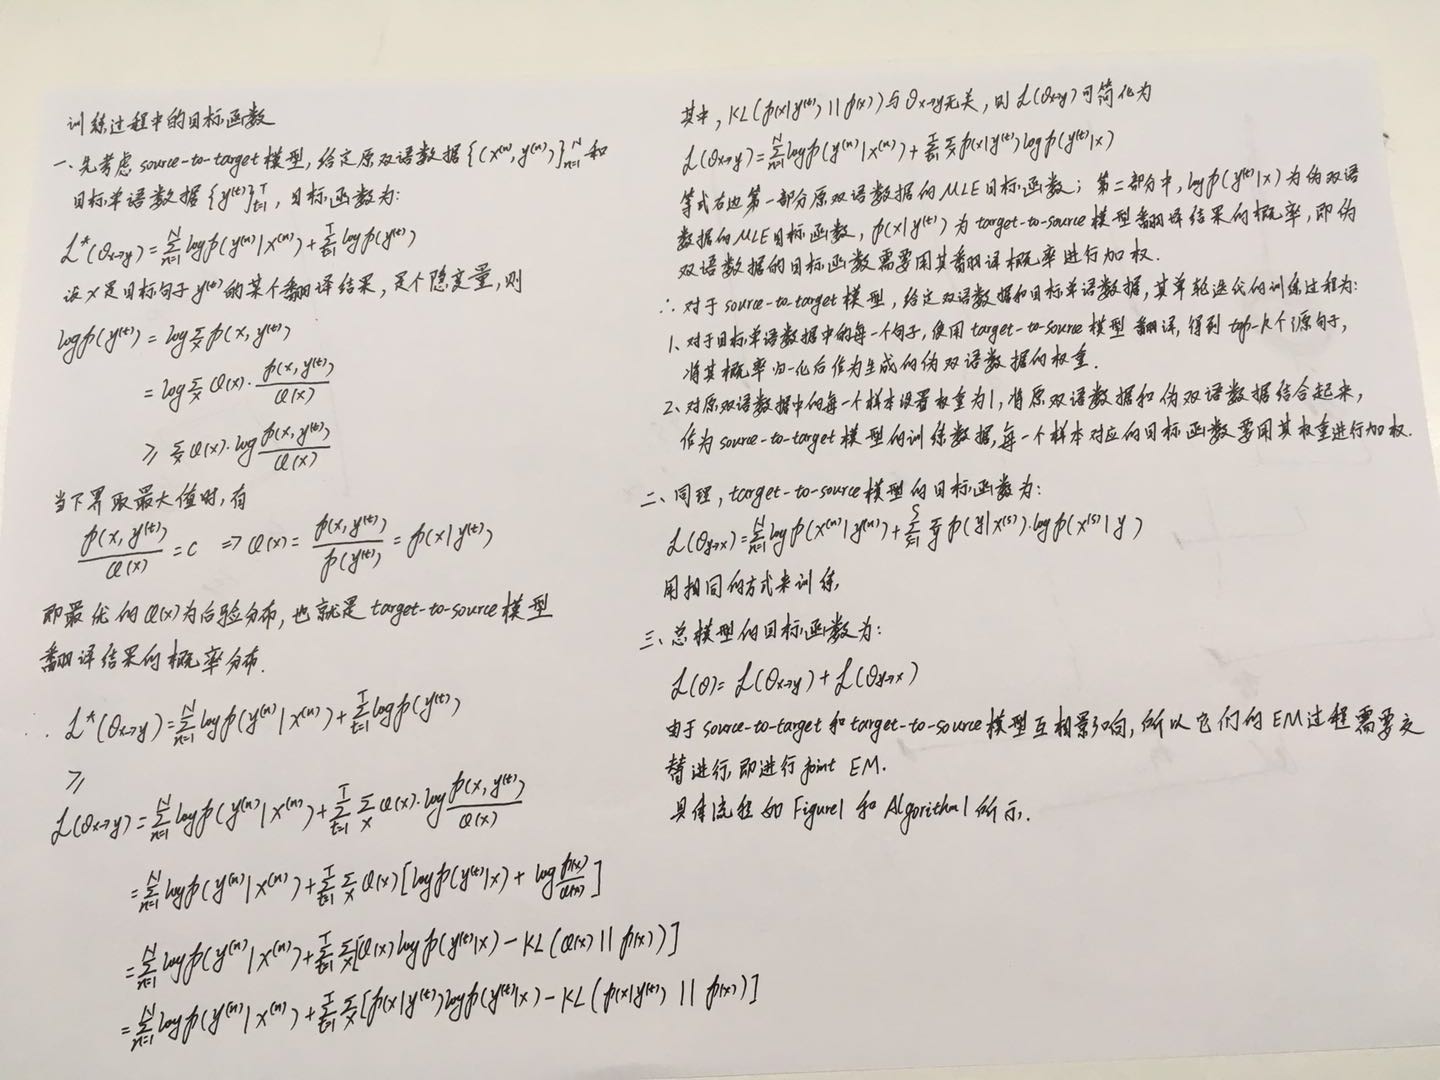 训练过程中的目标函数
一、先考虑 source-to-target 模型, 给定原双语数据 {(x⁽ⁿ⁾, y⁽ⁿ⁾)}ₙ₌₁ᴺ 和
目标单语数据 {y⁽ᵗ⁾}ₜ₌₁ᵀ, 目标函数为:
L*(θx→y) = Σₙ₌₁ᴺ log p(y⁽ⁿ⁾|x⁽ⁿ⁾) + Σₜ₌₁ᵀ log p(y⁽ᵗ⁾)
设 x 是目标句子 y⁽ᵗ⁾ 的某个翻译结果, 是个隐变量, 则
log p(y⁽ᵗ⁾) = log Σₓ p(x, y⁽ᵗ⁾)
= log Σₓ Q(x)· p(x, y⁽ᵗ⁾)/Q(x)
≥ Σₓ Q(x)·log p(x, y⁽ᵗ⁾)/Q(x)
当下界取最大值时, 有
p(x, y⁽ᵗ⁾)/Q(x) = c ⇒ Q(x) = p(x, y⁽ᵗ⁾)/p(y⁽ᵗ⁾) = p(x|y⁽ᵗ⁾)
即最优的 Q(x) 为后验分布, 也就是 target-to-source 模型
翻译结果的概率分布.
∴ L*(θx→y) = Σₙ₌₁ᴺ log p(y⁽ⁿ⁾|x⁽ⁿ⁾) + Σₜ₌₁ᵀ log p(y⁽ᵗ⁾)
≥
L(θx→y) = Σₙ₌₁ᴺ log p(y⁽ⁿ⁾|x⁽ⁿ⁾) + Σₜ₌₁ᵀ Σₓ Q(x)·log p(x, y⁽ᵗ⁾)/Q(x)
= Σₙ₌₁ᴺ log p(y⁽ⁿ⁾|x⁽ⁿ⁾) + Σₜ₌₁ᵀ Σₓ Q(x) [log p(y⁽ᵗ⁾|x) + log p(x)/Q(x)]
= Σₙ₌₁ᴺ log p(y⁽ⁿ⁾|x⁽ⁿ⁾) + Σₜ₌₁ᵀ Σₓ [Q(x) log p(y⁽ᵗ⁾|x) − KL(Q(x) || p(x))]
= Σₙ₌₁ᴺ log p(y⁽ⁿ⁾|x⁽ⁿ⁾) + Σₜ₌₁ᵀ Σₓ [p(x|y⁽ᵗ⁾) log p(y⁽ᵗ⁾|x) − KL(p(x|y⁽ᵗ⁾) || p(x))]
其中, KL(p(x|y⁽ᵗ⁾) || p(x)) 与 θx→y 无关, 则 L(θx→y) 可简化为
L(θx→y) = Σₙ₌₁ᴺ log p(y⁽ⁿ⁾|x⁽ⁿ⁾) + Σₜ₌₁ᵀ Σₓ p(x|y⁽ᵗ⁾) log p(y⁽ᵗ⁾|x)
等式右边第一部分原双语数据的 MLE 目标函数; 第二部分中, log p(y⁽ᵗ⁾|x) 为伪双语
数据的 MLE 目标函数, p(x|y⁽ᵗ⁾) 为 target-to-source 模型翻译结果的概率, 即伪
双语数据的目标函数需要用其翻译概率进行加权.
∴ 对于 source-to-target 模型, 给定双语数据和目标单语数据, 其单轮迭代的训练过程为:
1、对于目标单语数据中的每一个句子, 使用 target-to-source 模型翻译, 得到 top-k 个源句子,
将其概率归一化后作为生成的伪双语数据的权重.
2、对原双语数据中的每一个样本设置权重为1, 将原双语数据和伪双语数据结合起来,
作为 source-to-target 模型的训练数据, 每一个样本对应的目标函数要用其权重进行加权.
二、同理, target-to-source 模型的目标函数为:
L(θy→x) = Σₙ₌₁ᴺ log p(x⁽ⁿ⁾|y⁽ⁿ⁾) + Σₛ₌₁ˢ Σy p(y|x⁽ˢ⁾)·log p(x⁽ˢ⁾|y)
用相同的方式来训练,
三、总模型的目标函数为:
L(θ) = L(θx→y) + L(θy→x)
由于 source-to-target 和 target-to-source 模型互相影响, 所以它们的 EM 过程需要交
替进行, 即进行 joint EM.
具体流程如 Figure1 和 Algorithm1 所示.